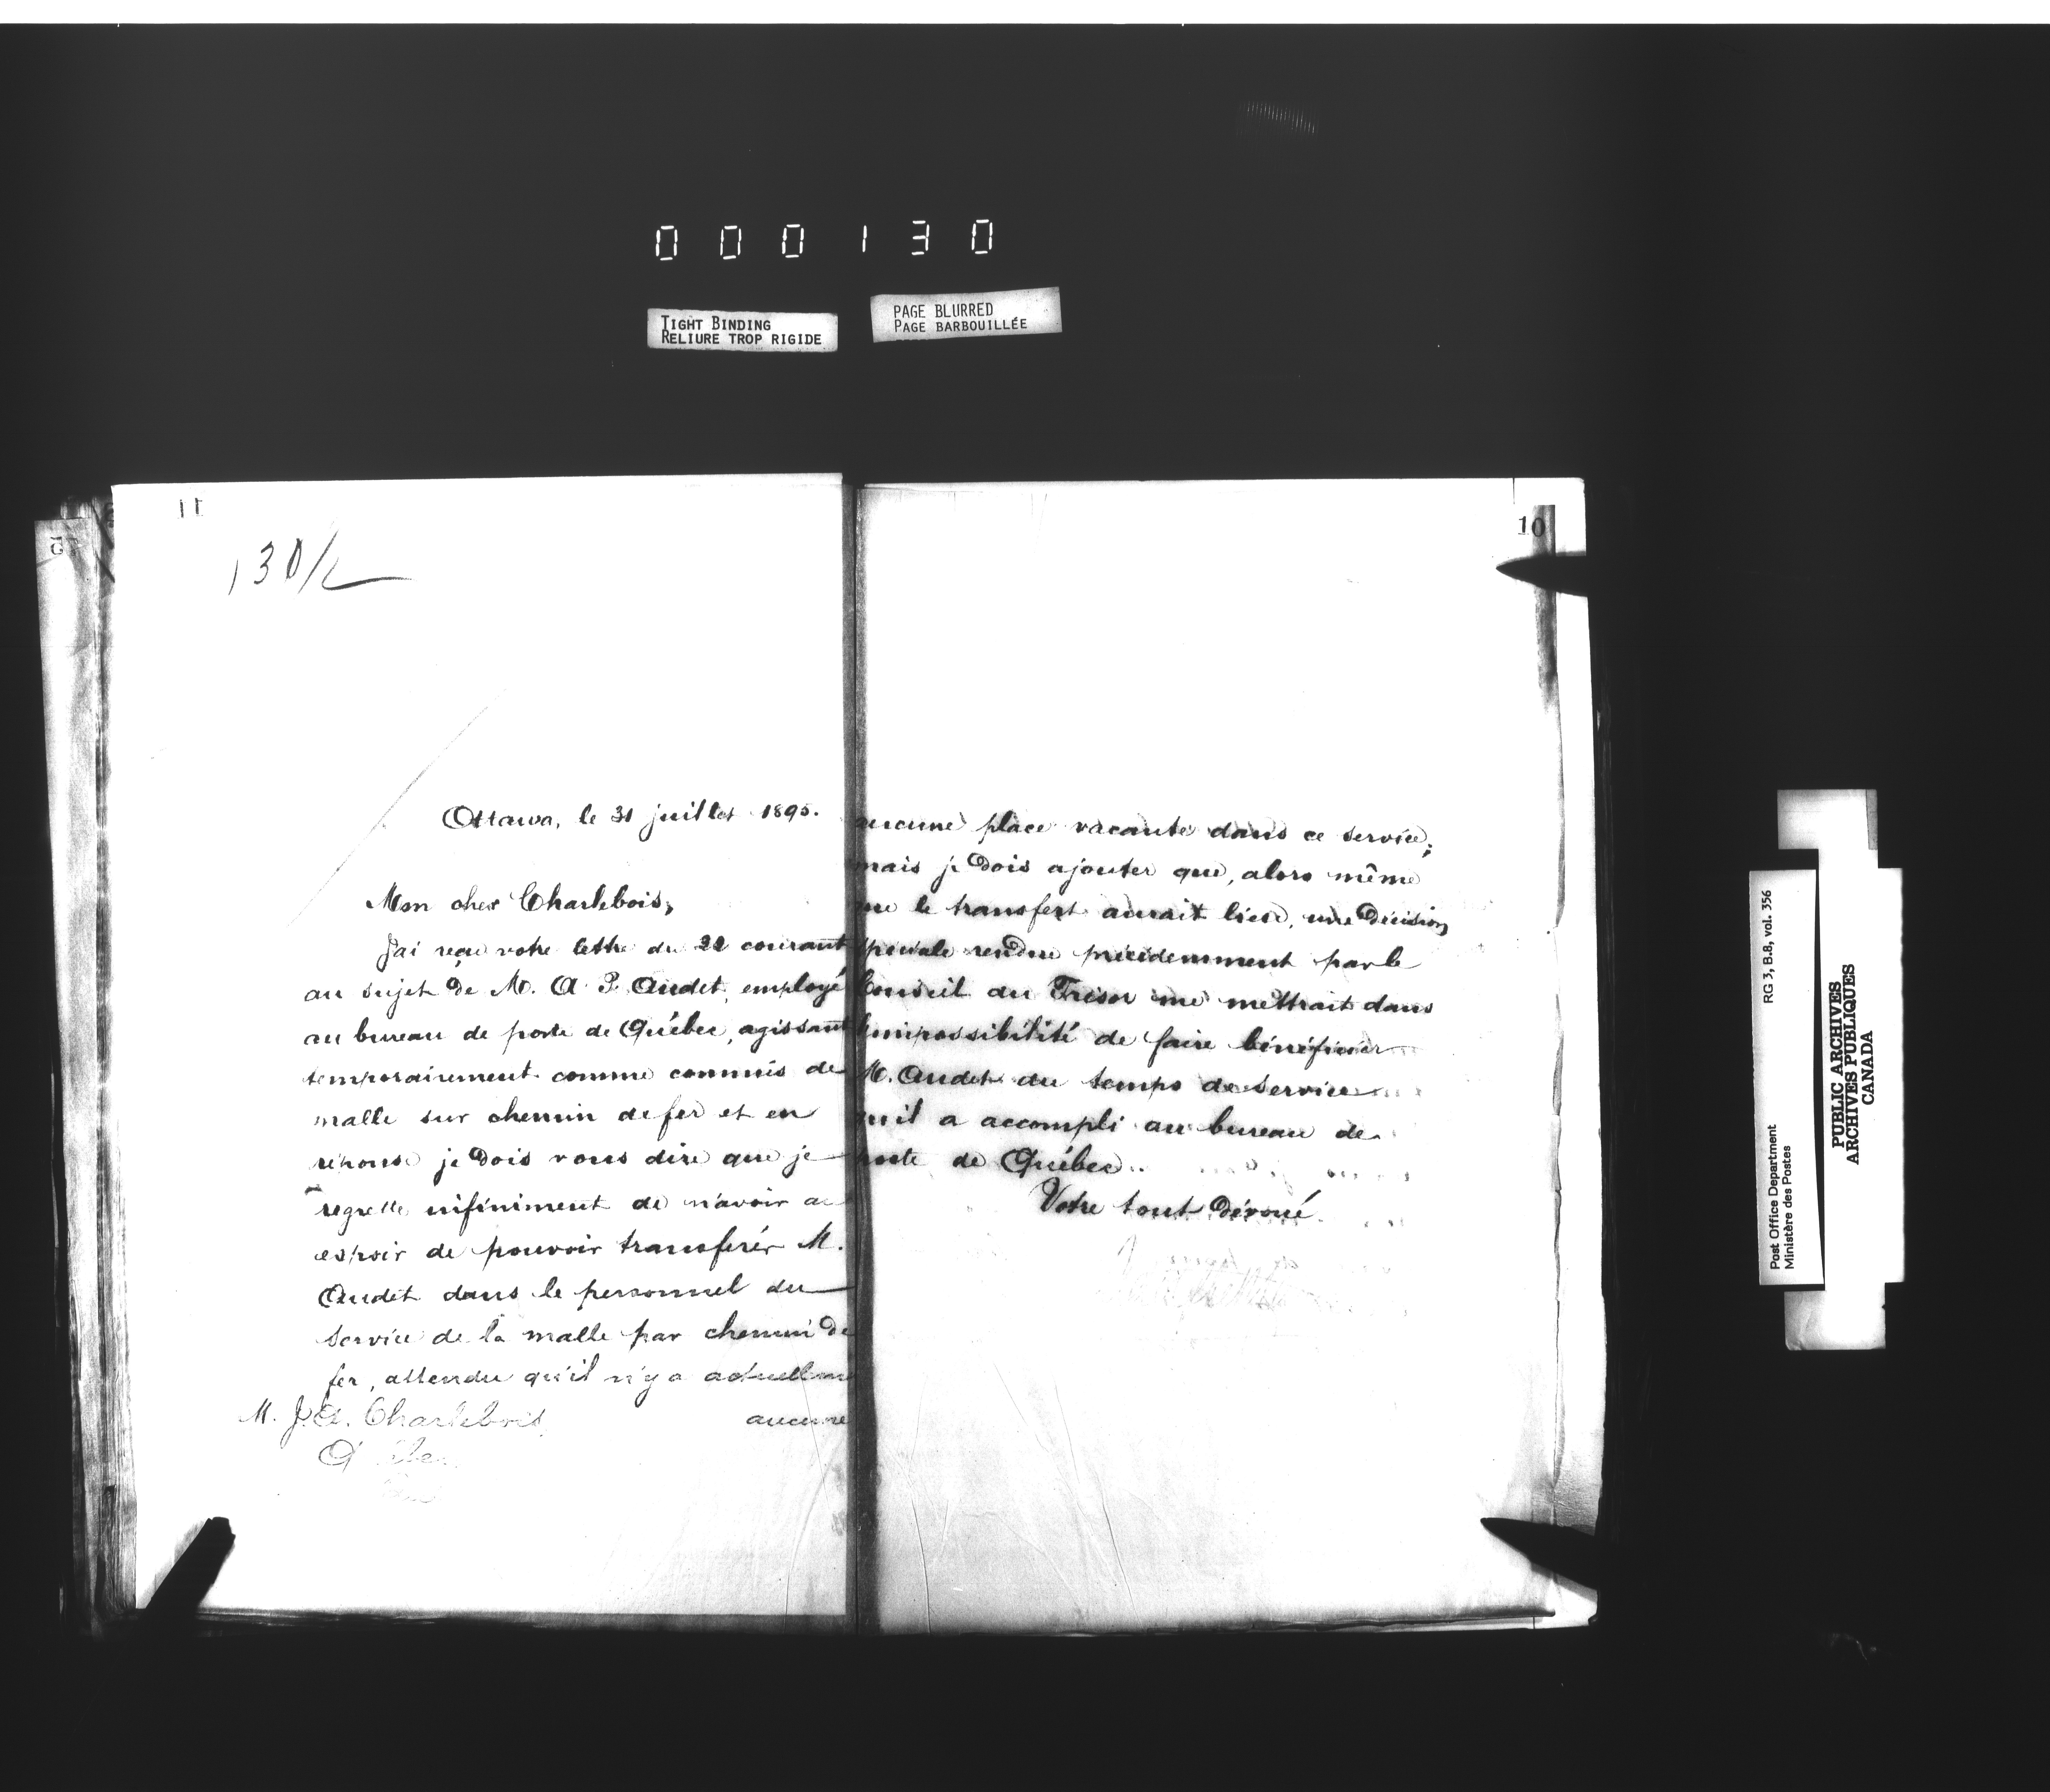 000130
TIGHT BINDING
RELIURE TROP RIGIDE
PAGE BLURRED
PAGE BARBOUILLÉE
11
130/2
Ottawa, le 31 juillet 1895.
Mon cher Charlebois,
J'ai reçu votre lettre du 22 courant
au sujet de M. A. P. Audet, employé
au bureau de poste de Québec, agissant
temporairement comme commis de
malle sur chemin de fer et en
réponse je dois vous dire que je
regrette infiniment de n'avoir
espoir de pouvoir transférer M.
Audet dans le personnel du
service de la malle par chemin de
fer, attendu qu'il n'y a actuellem
aucune
M. J. A. Charlebois,
10
aucune place vacante dans ce service;
mais je dois ajouter que, alors même
que le transfert aurait lieu, une décision
spéciale rendue précédemment par le
Conseil du Trésor me mettrait dans
l'impossibilité de faire bénéficier
M. Audet du temps de service
qu'il a accompli au bureau de
poste de Québec.
Votre tout dévoué
RG 3, B.8, vol. 356
Post Office Department
Ministère des Postes
PUBLIC ARCHIVES
ARCHIVES PUBLIQUES
CANADA